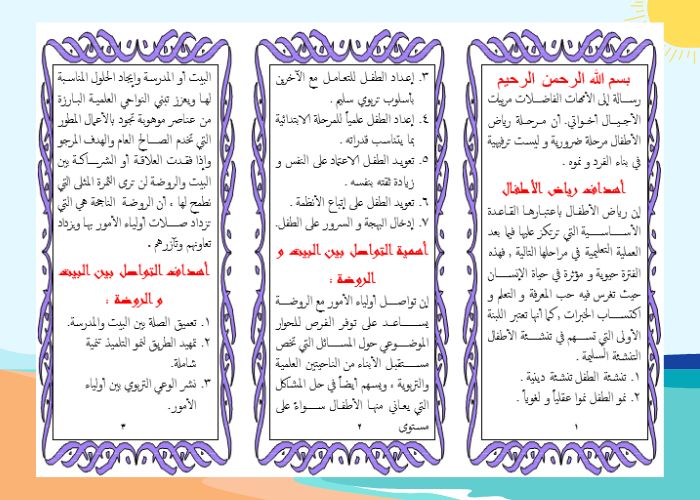 بسم الله الرحمن الرحيم
رسالة إلى الأمهات الفاضلات مربيات
الأجيال أخواتي. أن مرحلة رياض
الأطفال مرحلة ضرورية و ليست ترفيهية
في بناء الفرد و نموه .
أهداف رياض الأطفال
إن رياض الأطفال باعتبارها القاعدة
الأساسية التي ترتكز عليها فيما بعد
العملية التعليمية في مراحلها التالية ، فهذه
الفترة حيوية و مؤثرة في حياة الإنسان
حيث تغرس فيه حب المعرفة و التعلم و
اكتساب الخبرات ، كما أنها تعتبر اللبنة
الأولى التي تسهم في تنشئة الأطفال
التنشئة السليمة .
١. تنشئة الطفل تنشئة دينية .
٢. نمو الطفل نموا عقلياً و لغوياً .
١
٣. إعداد الطفل للتعامل مع الآخرين
بأسلوب تربوي سليم .
٤. إعداد الطفل علمياً للمرحلة الابتدائية
بما يتناسب قدراته .
٥. تعويد الطفل الاعتماد على النفس و
زيادة ثقته بنفسه .
٦. تعويد الطفل على إتباع الأنظمة .
٧. إدخال البهجة و السرور على الطفل.
أهمية التواصل بين البيت و
الروضة :
إن تواصل أولياء الأمور مع الروضة
يساعد على توفر الفرص للحوار
الموضوعي حول المسائل التي تخص
مستقبل الأبناء من الناحيتين العلمية
والتربوية ، ويسهم أيضاً في حل المشاكل
التي يعاني منها الأطفال سواءً على
مستوى
٢
البيت أو المدرسة وإيجاد الحلول المناسبة
لها ويعزز تبني النواحي العلمية البارزة
من عناصر موهوبة تجود بالأعمال المطور
التي تخدم الصالح العام والهدف المرجو
وإذا فقدت العلاقة أو الشراكة بين
البيت والروضة لن ترى الثمرة المثلى التي
نطمح لها ، أن الروضة الناجحة هي التي
تزداد صلات أولياء الأمور بها ويزداد
تعاونهم وتآزرهم .
أهداف التواصل بين البيت
و الروضة :
١. تعميق الصلة بين البيت والمدرسة.
٢. تمهيد الطريق لنمو التلميذ تنمية
شاملة.
٣. نشر الوعي التربوي بين أولياء
الأمور.
٣